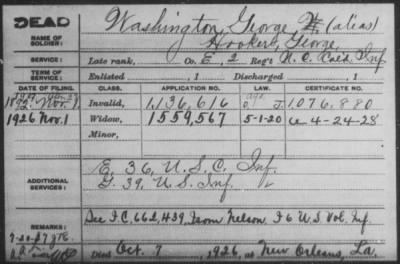 DEAD
NAME OF SOLDIER: Washington, George W. (alias)
Hooker, George
SERVICE: Late rank, Co. E, 2 Reg't N. C. Col'd Inf.
TERM OF SERVICE: Enlisted , 1 Discharged , 1
DATE OF FILING. CLASS. APPLICATION NO. LAW. CERTIFICATE NO.
1892 Nov. 1 Invalid, 1,136,616 J. 1,076,880
1926 Nov 1 Widow, 1559,567 5-1-20 a 4-24-28
Minor,
ADDITIONAL SERVICES: E. 36, U.S.C. Inf.
G. 39, U.S. Inf.
REMARKS: See I.C. 662,439, Nelson I 6 U.S. Vol. Inf.
Died Oct. 7, 1926, at New Orleans, La.